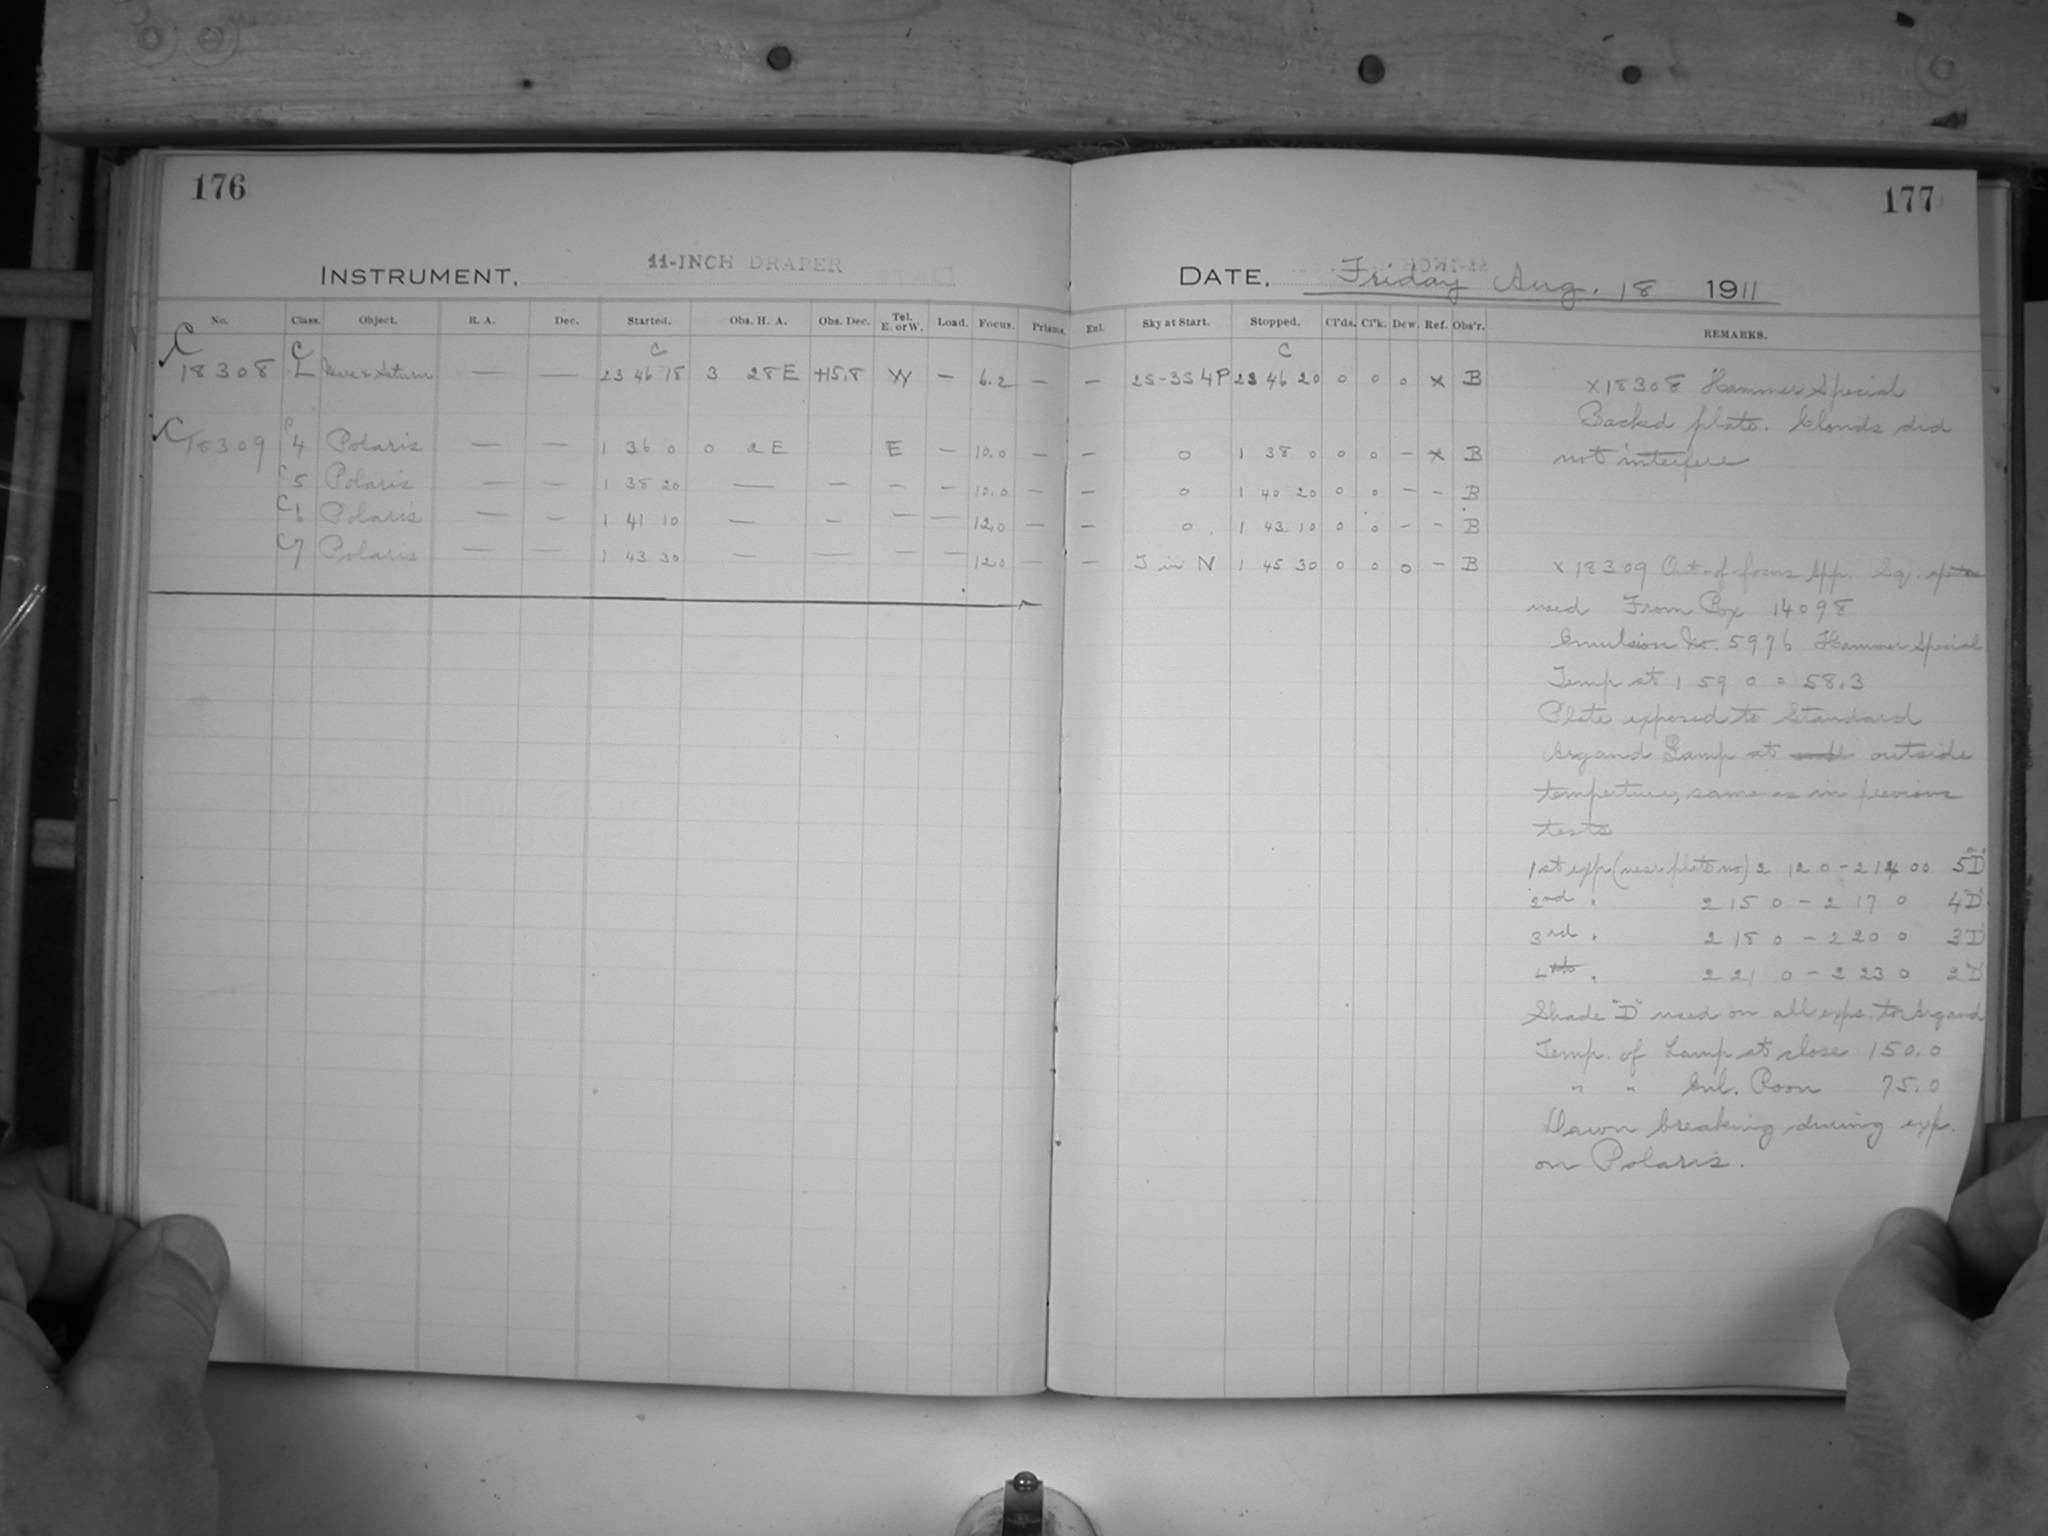 176
177
INSTRUMENT. 11-INCH DRAPER
DATE. Friday Aug. 18 1911
No. Class. Object. R. A. Dec. Started. Obs. H. A. Obs. Dec. Tel. E. or W. Load. Focus. Prisms. Enl. Sky at Start. Stopped. Cl'ds. Cl'k. Dew. Ref. Obs'r. REMARKS.
C C C C
18308 L & Saturn — — 23 46 18 3 28 E +15.8 W — 6.2 — — 2S-3S 4P 23 46 20 0 0 0 x B
C18309 C4 Polaris — — 1 36 0 0 2 E E — 10.0 — — 0 1 38 0 0 0 — x B
C5 Polaris — — 1 38 20 — — — — 10.0 — — 0 1 40 20 0 0 — — B
C6 Polaris — — 1 41 10 — — — — 12.0 — — 0 1 43 10 0 0 — — B
C7 Polaris — — 1 43 30 — — — — 12.0 — — J in N 1 45 30 0 0 0 — B
x 18308 Hammer Special
Backed plate. Clouds did
not interfere
x 18309 Out-of-focus App. Sq.
used From Box 14098
Emulsion No. 5976 Hammer Special
Temp at 1 59 0 = 58.3
Plate exposed to Standard
Argand Lamp at outside
temperture, same as in previous
tests
1st exp (near plate no) 2 12 0 - 2 14 00 5"D"
2nd " 2 15 0 - 2 17 0 4"D"
3rd " 2 18 0 - 2 20 0 3"D"
4th " 2 21 0 - 2 23 0 2"D"
Shade "D" used on all exps. to Argand
Temp. of Lamp at close 150.0
" " Enl. Room 75.0
Dawn breaking during exp.
on Polaris.